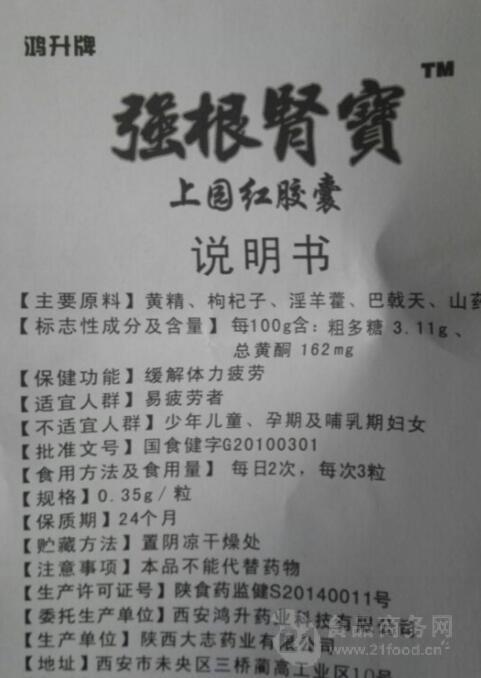 鸿升牌
强根肾寶 TM
上园红胶囊
说明书
【主要原料】黄精、枸杞子、淫羊藿、巴戟天、山药
【标志性成分及含量】每100g含：粗多糖 3.11g、
总黄酮 162mg
【保健功能】缓解体力疲劳
【适宜人群】易疲劳者
【不适宜人群】少年儿童、孕期及哺乳期妇女
【批准文号】国食健字G20100301
【食用方法及食用量】每日2次，每次3粒
【规格】0.35g/粒
【保质期】24个月
【贮藏方法】置阴凉干燥处
【注意事项】本品不能代替药物
【生产许可证号】陕食药监健S20140011号
【委托生产单位】西安鸿升药业科技有限公司
【生产单位】陕西大志药业有限公司
【地址】西安市未央区三桥蔺高工业区10号
食品商务网
www.21food.cn